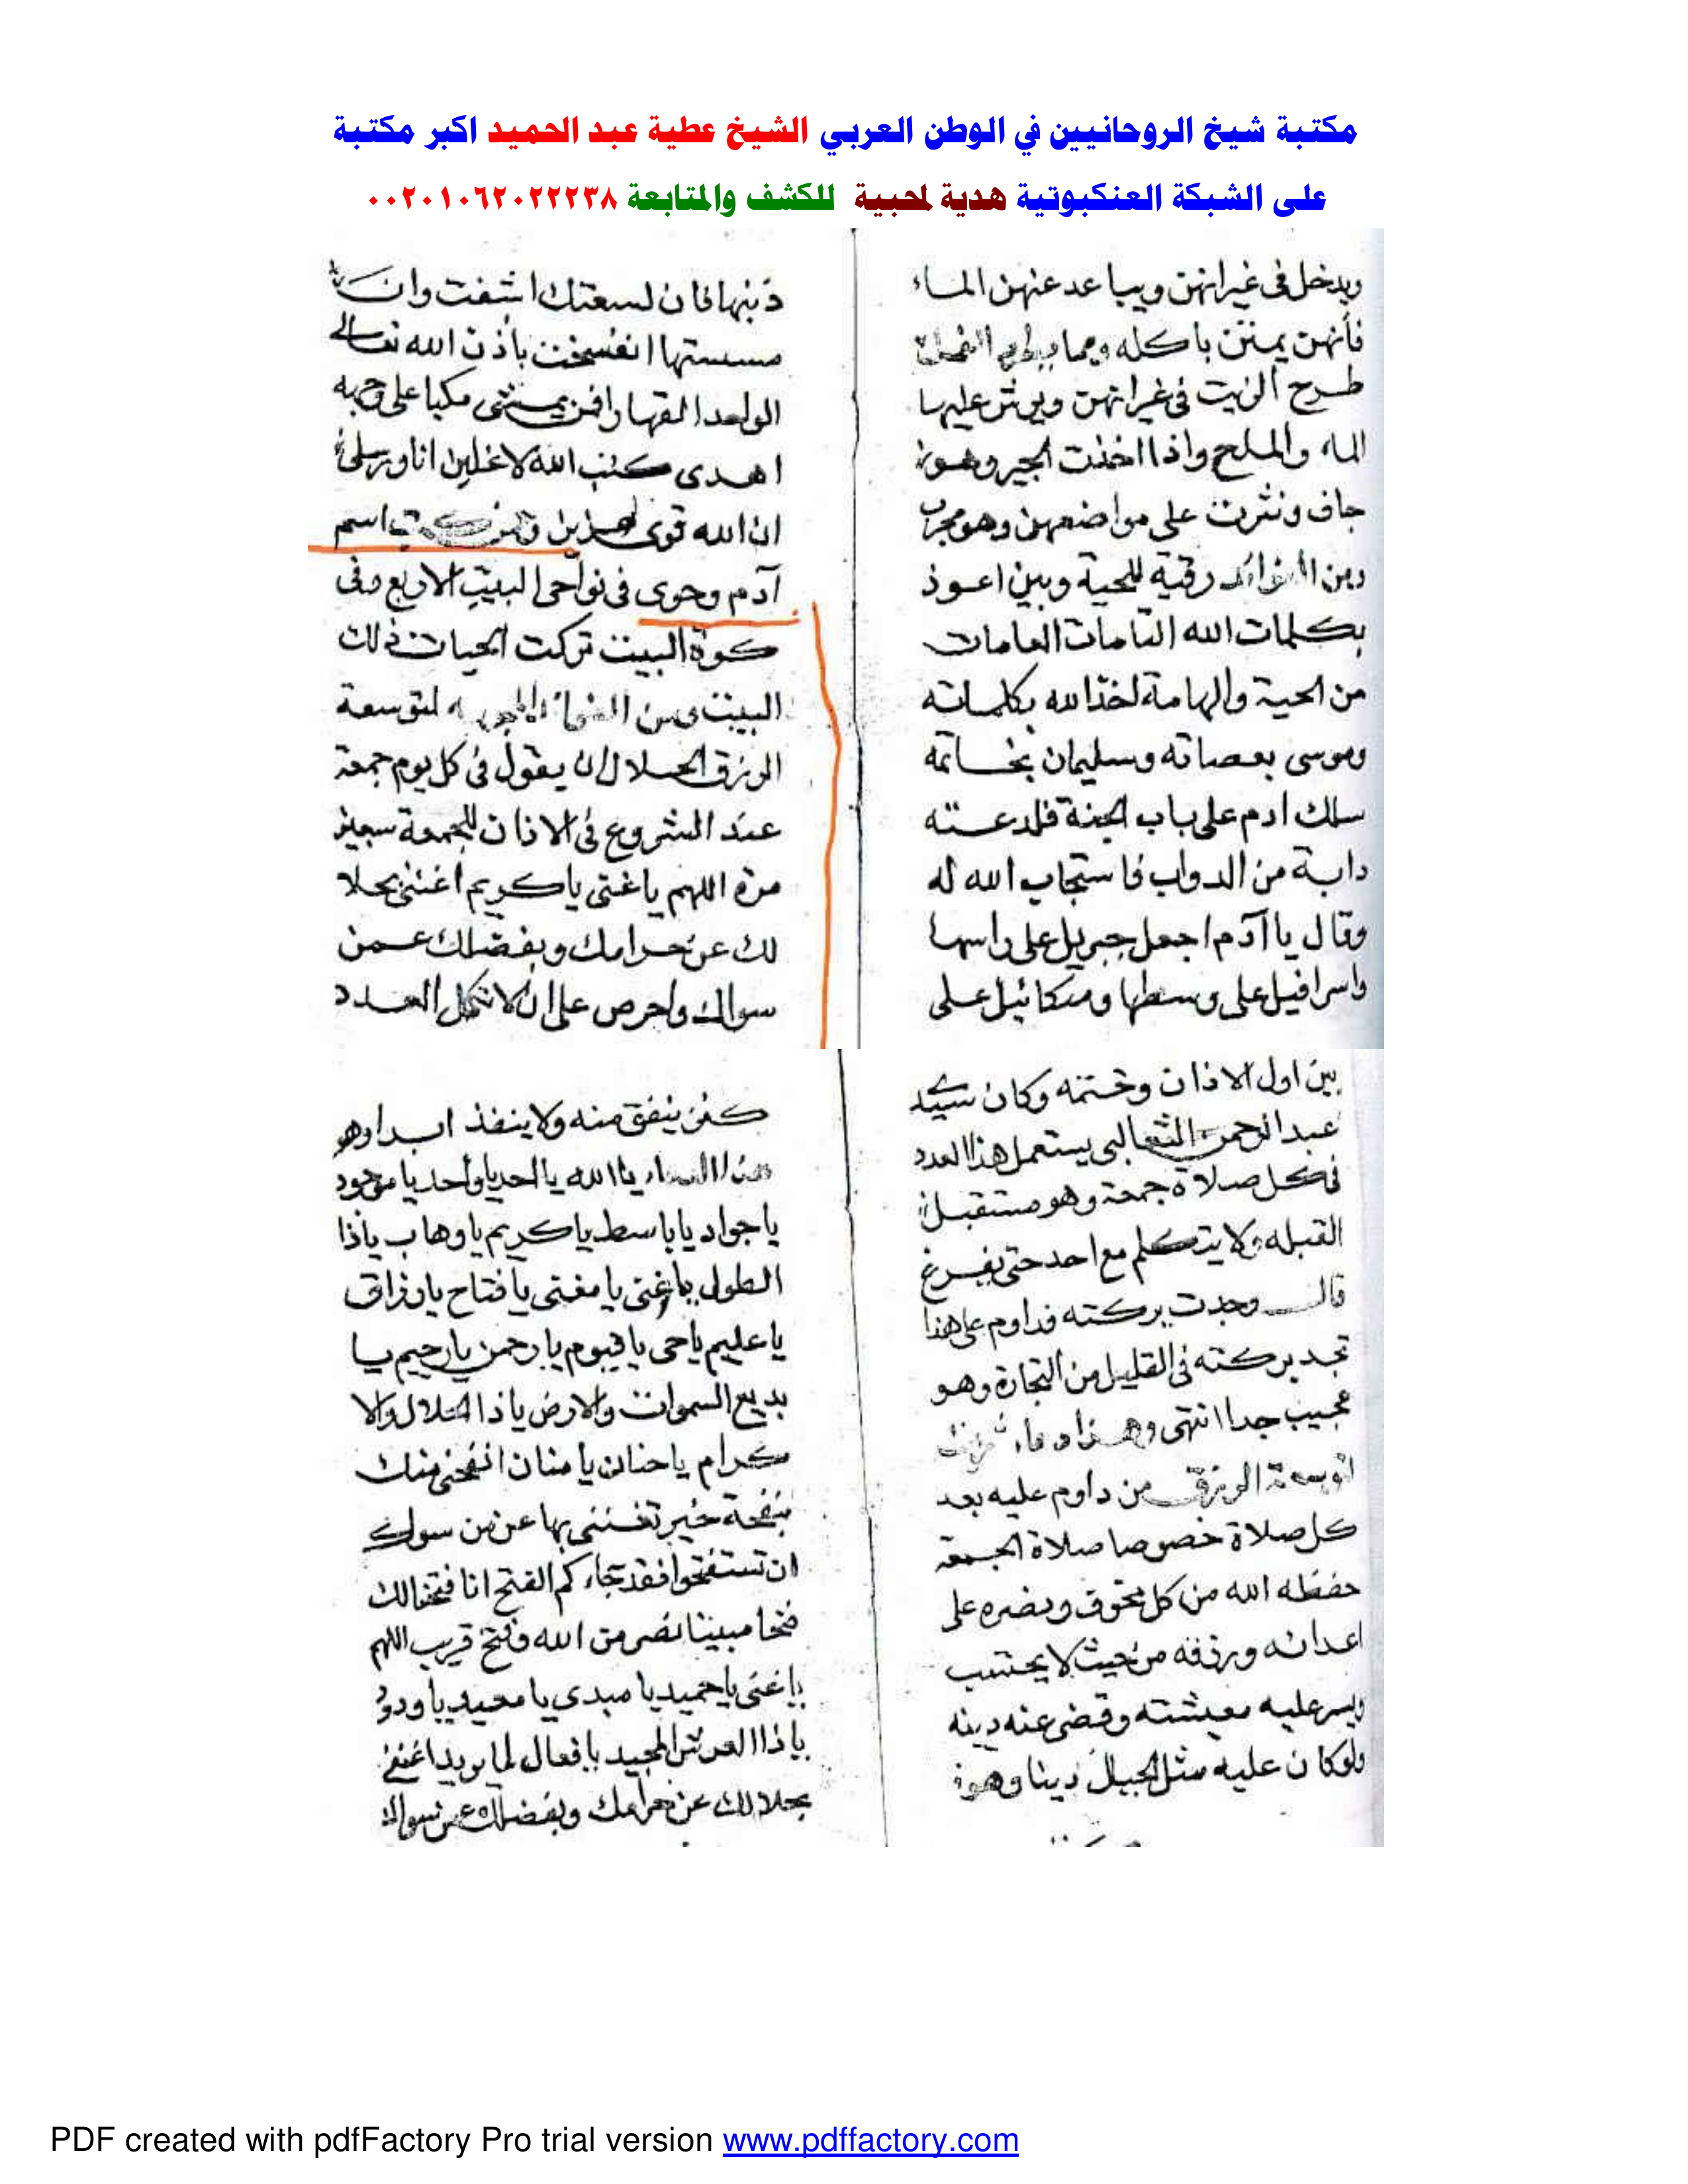 مكتبة شيخ الروحانيين في الوطن العربي الشيخ عطية عبد الحميد اكبر مكتبة
على الشبكة العنكبوتية هدية لمحبية للكشف والمتابعة ٠٠٢٠١٠٦٢٠٢٢٢٣٨
ويدخل فى غيرانهن ويباعد عنهن الماء
فأنهن يمتن باكله ومما
طرح الزيت فى غيرانهن ويرش عليها
الماء والملح واذا اخذت الجير وهو
جاف ونثرت على مواضعهن وهو مجرب
ومن رقية للحية وبين اعوذ
بكلمات الله التامات العامات
من الحية والهامة لخذ الله بكلماته
وموسى بعصاته وسليمان بخاتمه
سلك ادم على باب الجنة فلدعته
دابة من الدواب فاستجاب الله له
وقال يا آدم اجعل جبريل على راسها
واسرافيل على وسطها وميكائيل على
ذبنها فان لسعتك اشفت وان
مسستها انفسخت باذن الله تعالى
الواحد القهار افمن يمشى مكبا على وجهه
اهدى كتب الله لاغلبن انا ورسلى
ان الله قوى اسم
آدم وحوى فى نواحى البيت الاربع وفى
كوة البيت تركت الحيات ذلك
البيت ومن لتوسعة
الرزق الحلال ان يقول فى كل يوم جمعة
عند الشروع فى الاذان للجمعة سبعين
مرة اللهم يا غنى يا كريم اغننى بحلا
لك عن حرامك وبفضلك عمن
سواك واحرص على ان لا تكمل العدد
بين اول الاذان وختمه وكان سيد
عبد الرحمن الثعالبى يستعمل هذا العدد
فى كل صلاة جمعة وهو مستقبل
القبله ولا يتكلم مع احد حتى يفرغ
قال وجدت بركته فداوم على هذا
تجد بركته فى القليل من التجارة وهو
عجيب جدا انتهى وهذا دعاء
الرزق من داوم عليه بعد
كل صلاة خصوصا صلاة الجمعة
حفظه الله من كل مخوف ونصره على
اعدائه ورزقه من حيث لا يحتسب
ويسر عليه معيشته وقضى عنه دينه
ولو كان عليه مثل الجبال دينا وهو
كنز ينفق منه ولا ينفذ ابدا وهو
يا الله يا احد يا واحد يا موجود
يا جواد يا باسط يا كريم يا وهاب يا ذا
الطول يا غنى يا مغنى يا فتاح يا رزاق
يا عليم يا حى يا قيوم يا رحمن يا رحيم يا
بديع السموات والارض يا ذا الجلال والا
كرام يا حنان يا منان انفحنى منك
بنفحة خير تغننى بها عن من سواك
ان تستفتحوا فقد جاءكم الفتح انا فتحنا لك
فتحا مبينا نصر من الله وفتح قريب اللهم
يا غنى يا حميد يا مبدى يا معيد يا ودود
يا ذا العرش المجيد يا فعال لما يريد اغننى
بحلالك عن حرامك وبفضلك عن سواك
PDF created with pdfFactory Pro trial version www.pdffactory.com